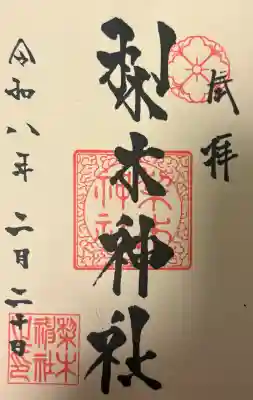 奉拝
梨木神社
梨木神社
令和八年二月二十日
梨木
神社
之印